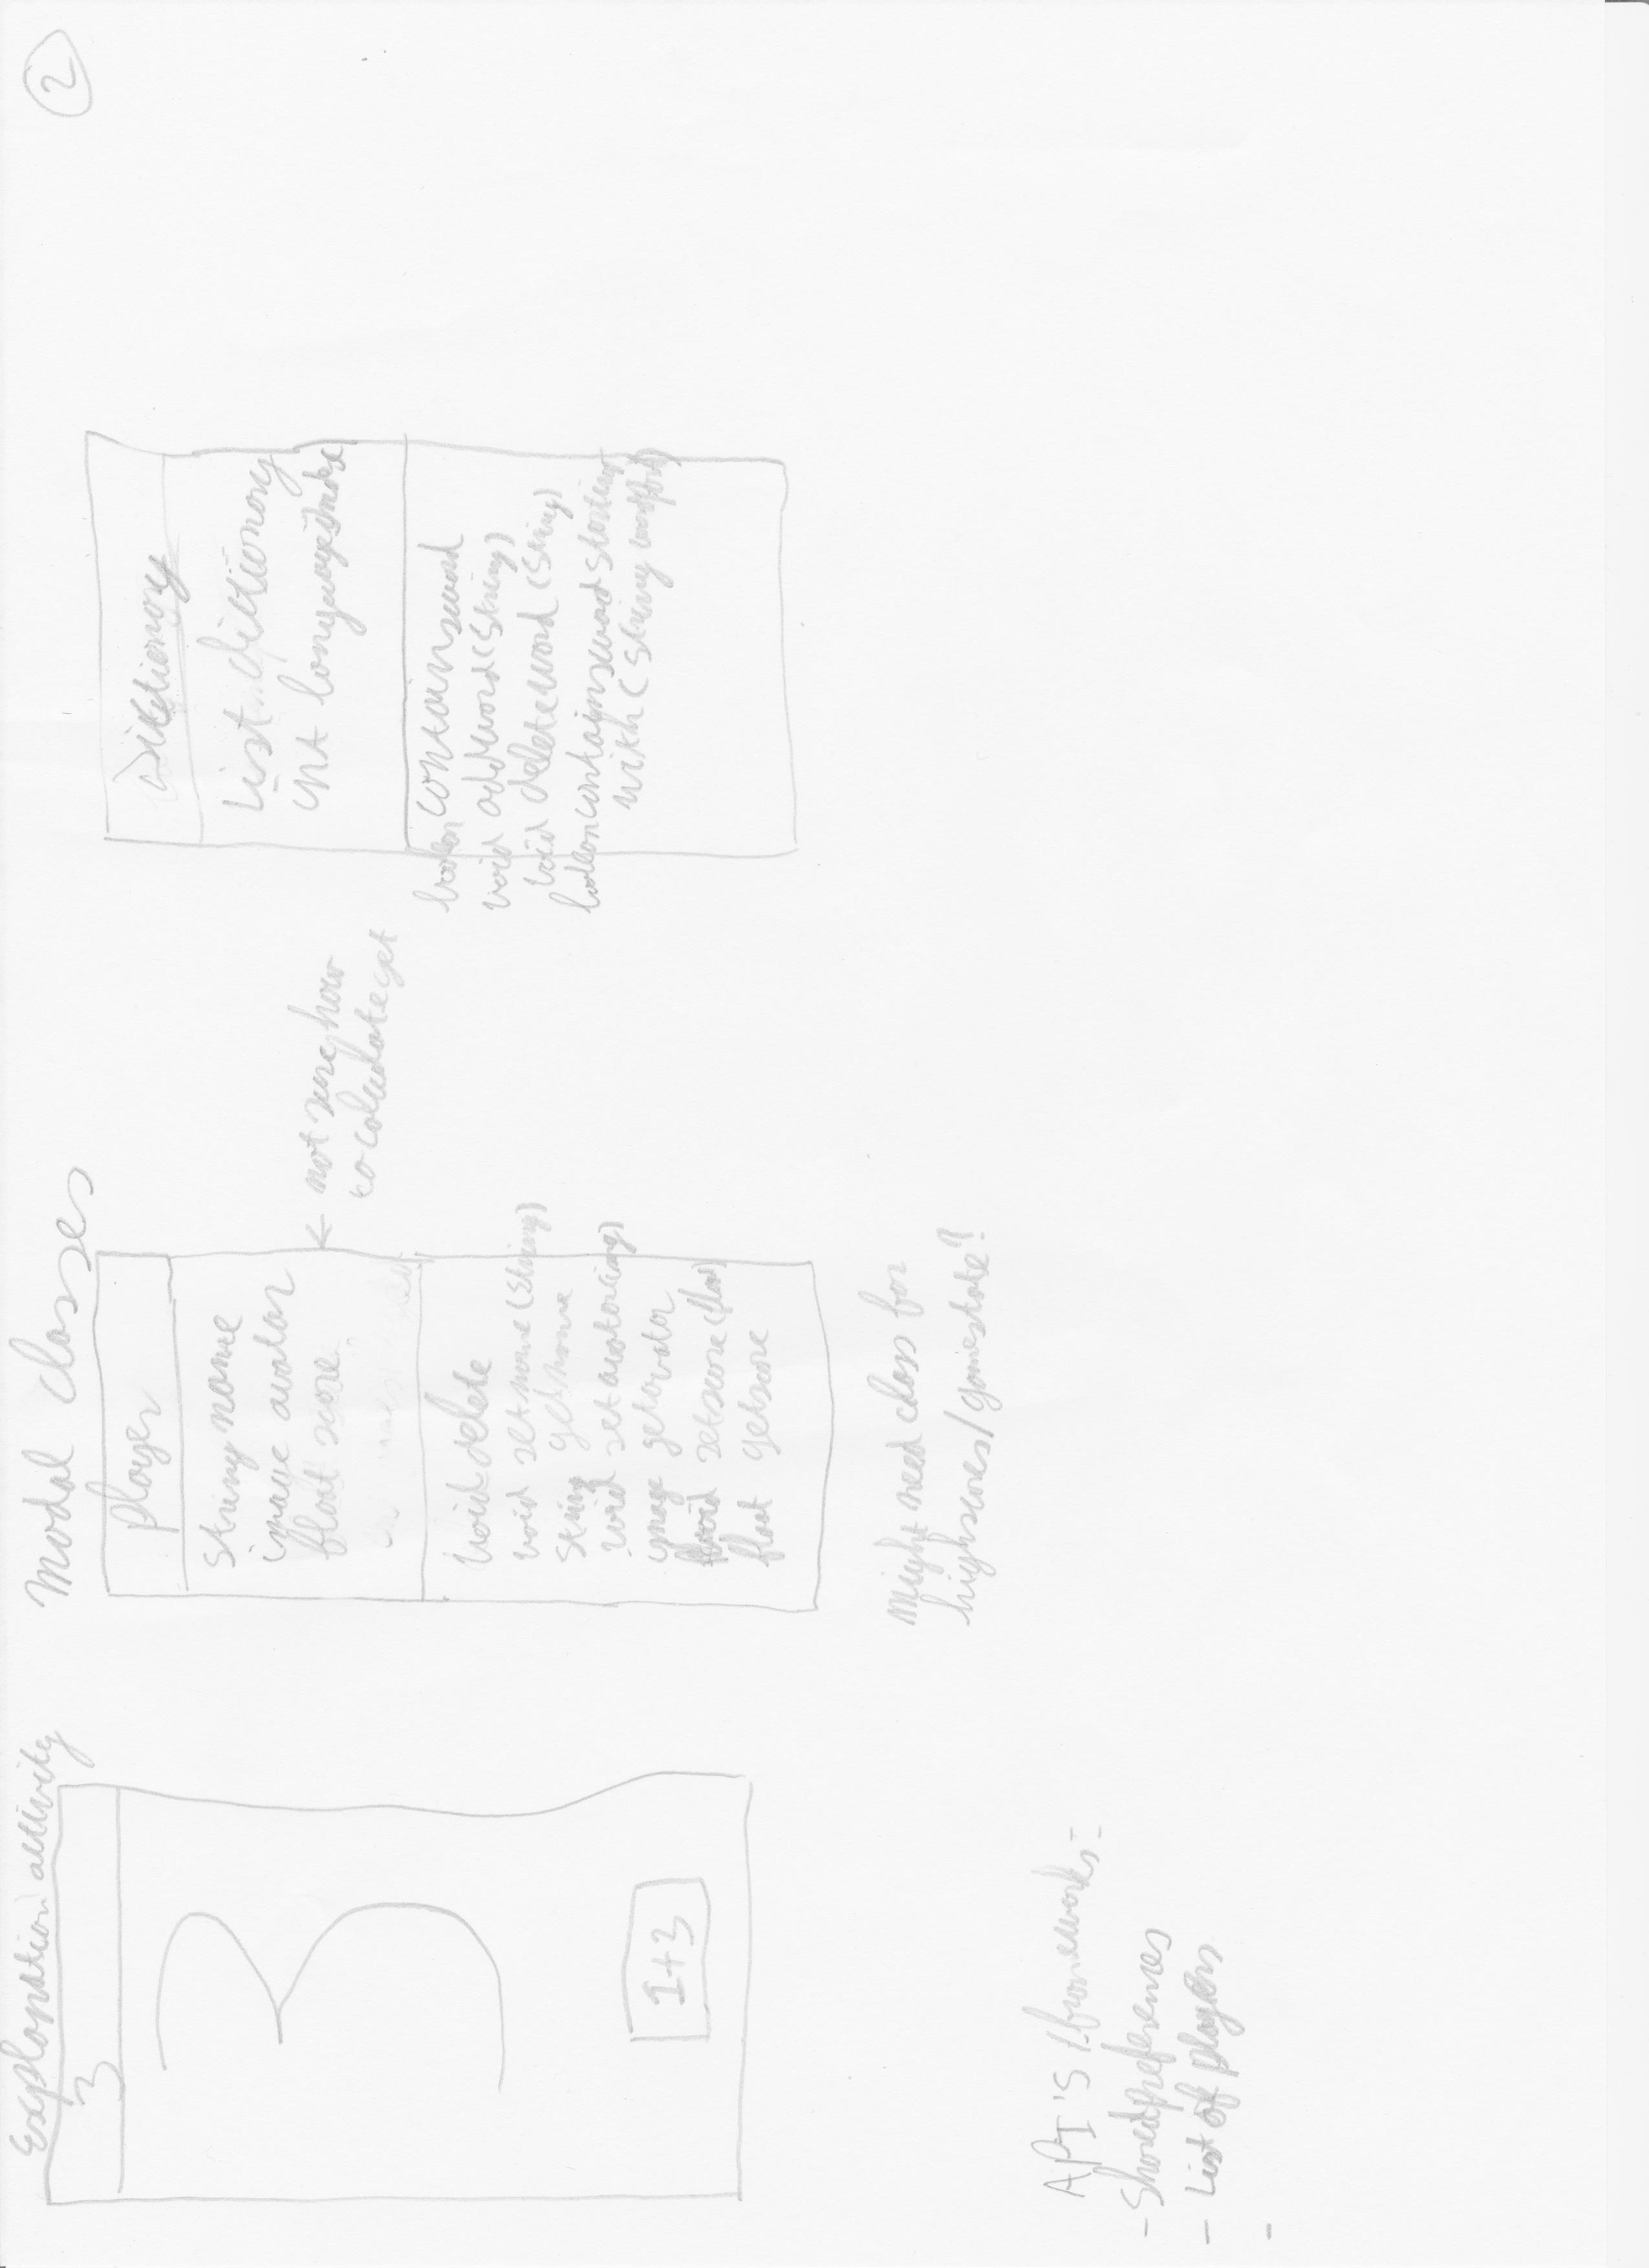 2
Explanation activity
3
1+3
API's/frameworks:
- Sharedpreferences
- List of players
-
Model classes
player
String name
image avatar
float score
← not sure how
to calculate yet
void delete
void setname (String)
String getname
void setavatar(img)
image getavatar
void setscore (float)
float getscore
Might need class for
highscores/gamestate?
Dictionary
List dictionary
int languageindex
boolean containsword
void addword(String)
void deleteword(String)
boolean containswordstarting
with (String wordpart)